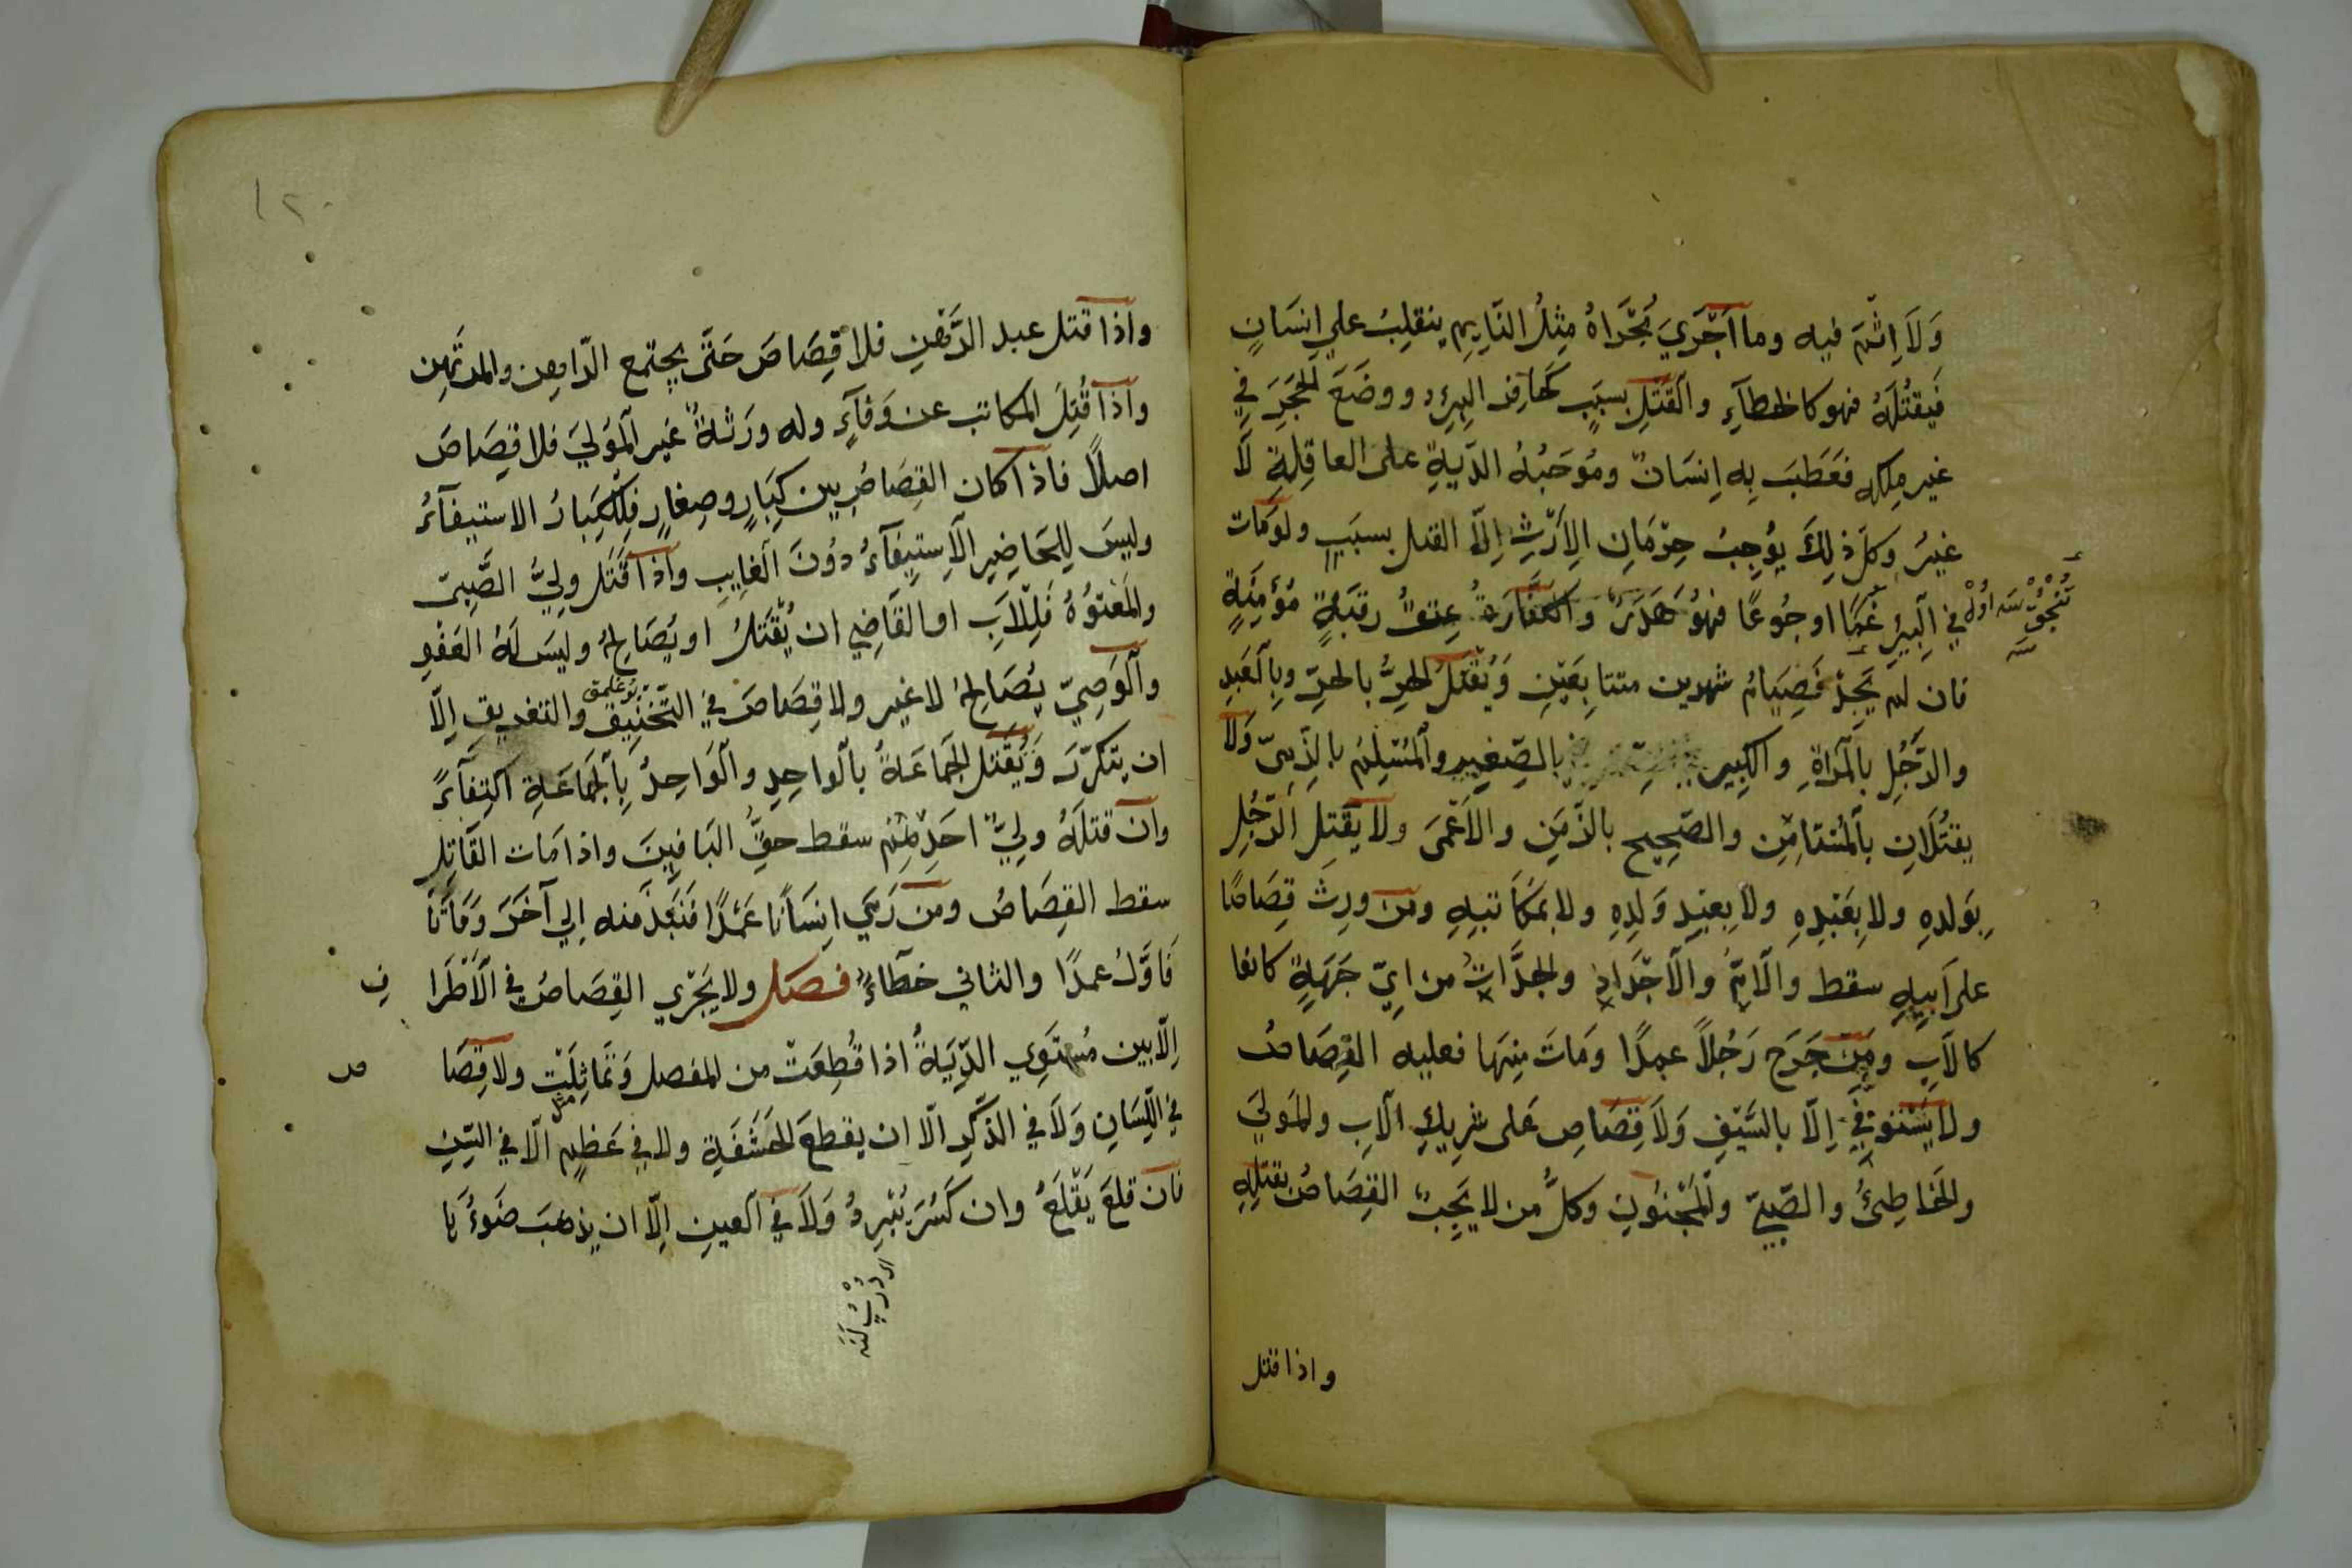 وَلَا اِثْمَ فيه وما اَجْرَيَ مُجْرَاهُ مِثْلُ النَّايِمِ ينقلِبُ علي اِنسَانٍ
فَيقتُلَهُ فهو كالخطآءِ والقَتْلِ بسبَبٍ كحَافِر البِيرِ ووضَعَ الحجَرَ في
غير مِلكه فعَطَبَ بِه اِنسَانٌ ومُوجَبُهُ الدّيةِ على العاقِلةِ لَا
غيرُ وكلّ ذلِكَ يُوجِبُ حِرْمَانِ الاِرْثِ اِلّا القتل بسبَبٍ ولو مَات
في الْبِيرِ غَمًّا او جُوعًا فهُو هَدَرٌ والكَفَّارَةُ عِتقُ رقبَةٍ مُؤْمِنَةٍ
فان لم يَجِدْ فَصِيَامُ شهرين متتابِعَيْنِ وَيُقْتَلُ الحُرُّ بالحرِّ وبِالْعَبدِ
والرَّجُلِ بالْمَرْاةِ والكَبِير بالصِّغيرِ والْمُسْلِمُ بالذِّمِيّ وَلَا
يقتُلَانِ بالْمُسْتامِنِ والصّحِيح بالزَّمِنِ والاَعْمَى ولا يُقْتَلِ الرَّجُلِ
بِوَلدِهِ ولا بِعَبْدِهِ ولا بِعبْدِ وَلَدِهِ ولا بمُكَاتبِهِ ومَن ورِثَ قِصَاصًا
على اَبِيهِ سقط والاُمِّ والاَجْدَادِ والجدَّاتِ من ايّ جَهَةٍ كانوا
كالاَبِ ومَنْ جَرَحَ رَجُلاً عمدًا ومَاتَ مِنهَا فعليه القِصَاصُ
ولا يُسْتَوفِي اِلّا بالسَّيْفِ وَلَا قِصَاصِ عَلى شرِيكِ الاَبِ والمَولَي
والخَاطِئُ والصّبيّ والْمَجْنُونِ وكلُّ من لا يَجِبُ القِصَاصُ بقتلِهِ
واذا قتل
١٢٠
واذا قتل عبد الرَّهْنِ فلا قِصَاصَ حَتّى يجتمع الرّاهِن والمرتَهِن
واذا قُتِلَ المكاتب عن وَفَآءٍ وله وَرَثةٌ غير الْمَولَيَ فلا قِصَاصَ
اصلًا فاذا كان القِصَاصُ بين كِبَارٍ وصِغارٍ فلِلْكِبَارُ الاستيفآءُ
وليسَ لِلحَاضِرِ الاَستِيفآءُ دُونَ الغايِبِ واذا قَتَل ولِيُّ الصَّبيّ
والمَعْتُوْهُ فَلِلْاَبِ او القَاضِي ان يُقْتَلُ او يُصَالِحُ وليسَ لَهُ العَفْوِ
والْوَصِيّ يُصَالِحُ لا غير ولا قِصَاصَ في التّخْنِيقِ والتغريقِ اِلّا
ان يتكرّرَ وَيُقْتَل الجَمَاعَةُ بالواحِدِ والْوَاحِدُ بِالْجَمَاعَةِ اكتفَآءً
وان قتلَهُ ولِيُّ احَدِهِمْ سقط حقُّ البَاقِينَ واذا مَات القَاتِل
سقط القِصَاصُ ومن رَمَي انِسَانًا عَمْدًا فنَفَذَ منه اِلي آخَرَ وَمَاتَا
فاوّلُ عمدًا والثاني خطآءً فصل ولا يَجْرِي القِصَاصُ في الْاَطْرَا
ف
اِلّا بين مُستَوِي الدِّيَةُ اذا قُطِعَتْ من المفصل وَتَماثِلَتْ ولا قِصَا
ص
في اللِّسَانِ وَلَا في الذّكَرِ الّا ان يقطعَ الحَشَفَةِ ولا في عَظمٍ الّا في السِّنِ
فان قلِعَ يَقْلَعُ وان كَسُرَ يُبْرِدُ وَلَا في العينِ اِلّا ان يذهبَ ضَوءُهَا